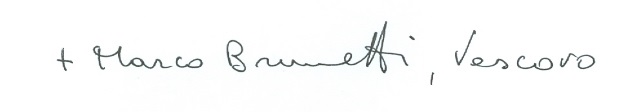 + Marco Brunetti, Vescovo